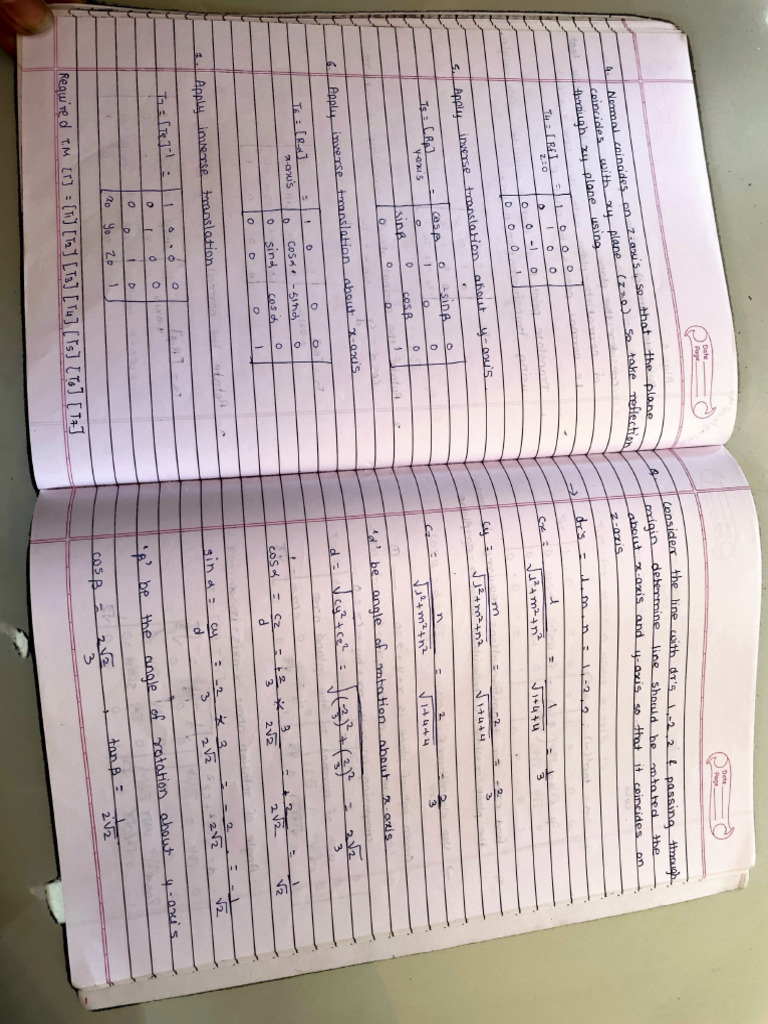 Date
Page
4. Normal coincides on z-axis, so that the plane
coincides with xy plane (z=0) so take reflection
through xy plane using
T4 = [Rf] z=0 = 1 0 0 0
0 1 0 0
0 0 -1 0
0 0 0 1
5. Apply inverse translation about y-axis
T5 = [Rβ] y-axis = cosβ 0 -sinβ 0
0 1 0 0
sinβ 0 cosβ 0
0 0 0 1
6. Apply inverse translation about x-axis
T6 = [Rα] x-axis = 1 0 0 0
0 cosα -sinα 0
0 sinα cosα 0
0 0 0 1
7. Apply inverse translation
T7 = [Te]-1 = 1 0 0 0
0 1 0 0
0 0 1 0
x0 y0 z0 1
Required T.M [T] = [T1] [T2] [T3] [T4] [T5] [T6] [T7]
Date
Page
Q. consider the line with dr's 1,-2,2 & passing through
origin determine line should be rotated the
about x-axis and y-axis so that it coincides on
z-axis
→ dr's = l, m, n = 1, -2, 2
cx = l/√l²+m²+n² = 1/√1+4+4 = 1/3
cy = m/√l²+m²+n² = -2/√1+4+4 = -2/3
cz = n/√l²+m²+n² = 2/√1+4+4 = 2/3
'α' be angle of rotation about x axis
d = √cy²+cz² = √(-2/3)²+(2/3)² = 2√2/3
cosα = cz/d = +2/3 × 3/2√2 = +2/2√2 = 1/√2
sinα = cy/d = -2/3 × 3/2√2 = -2/2√2 = -1/√2
'β' be the angle of rotation about y-axis
cosβ = 2√2/3 , tanβ = 1/2√2